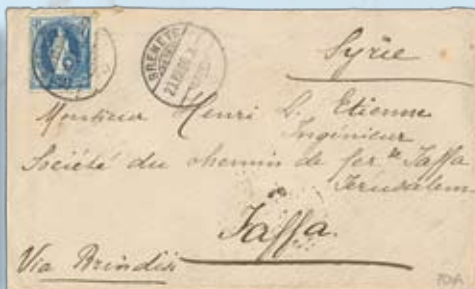 Syrie
BRENETS
Monsieur Henri L. Etienne
Ingénieur
Société du chemin de fer Jaffa
Jerusalem
Jaffa.
Via Brindisi